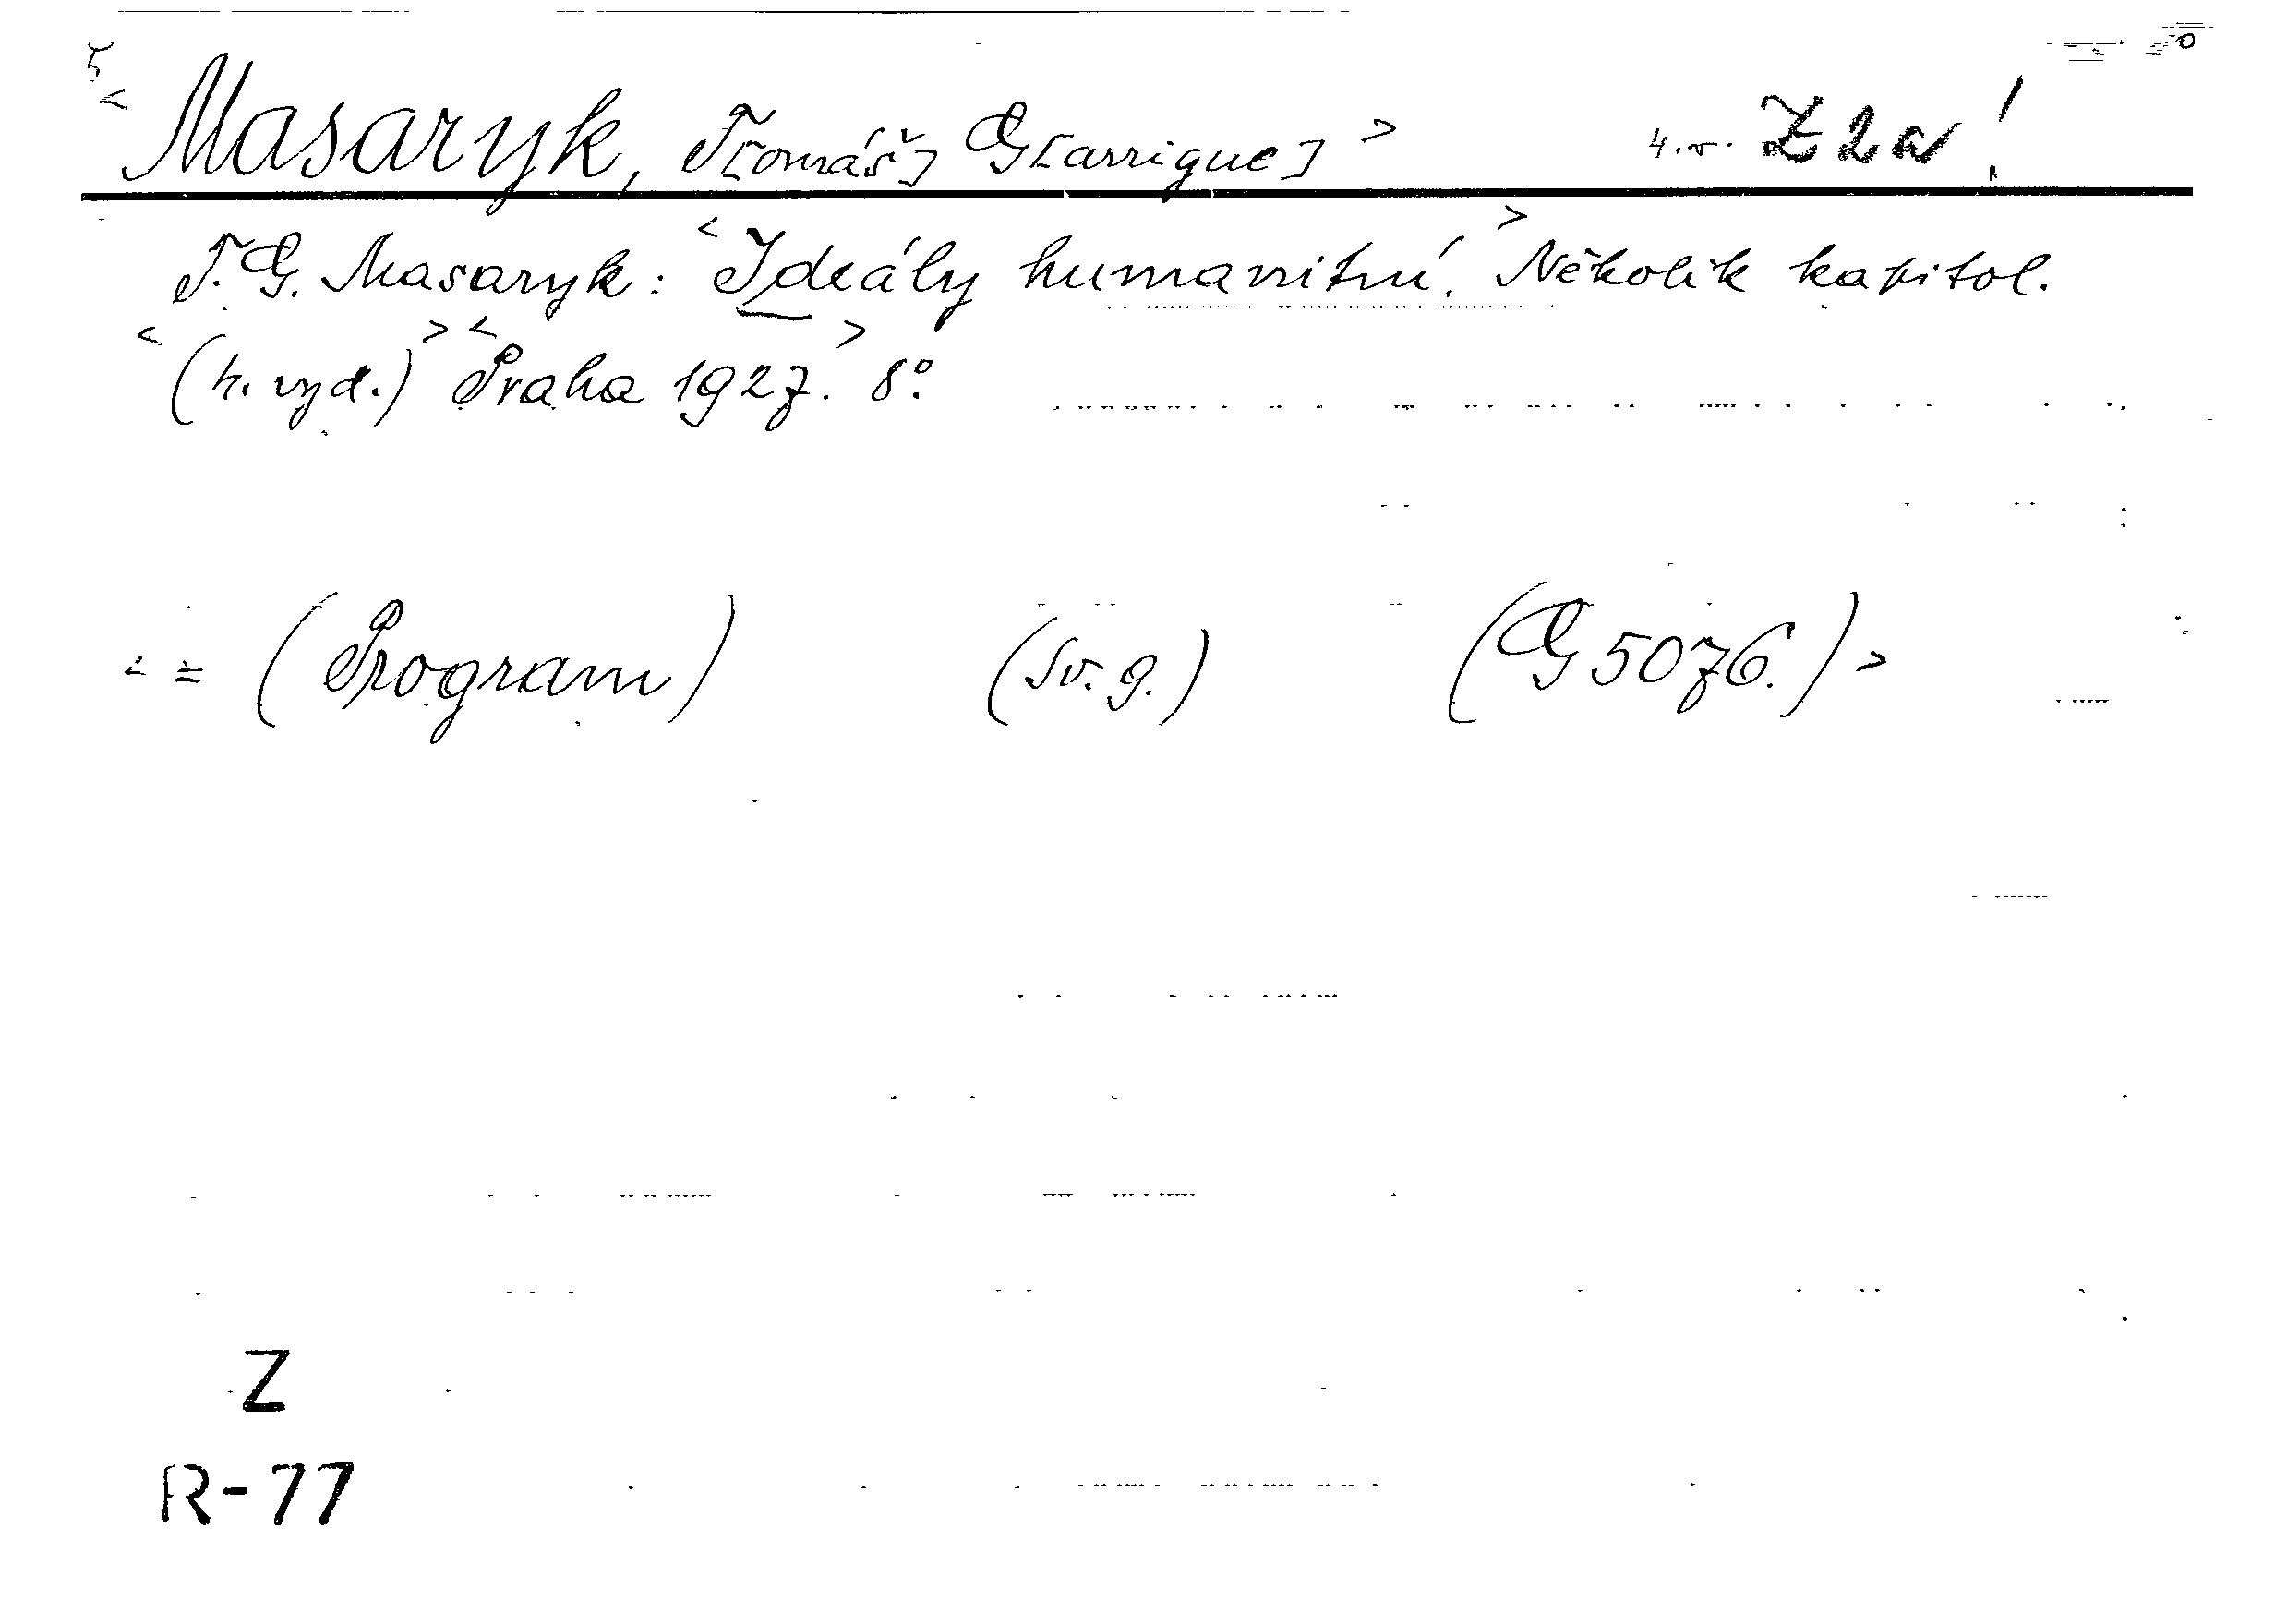 <Masaryk, T[omáš] G[arrigue]> 4.v. Z2a!
T. G. Masaryk: <Ideály humanitní.> Několik kapitol.
<(4. vyd.)> <Praha 1927.> 8°.
<= (Program) (Sv. 9.) (G 5076.)>
Z
R-77